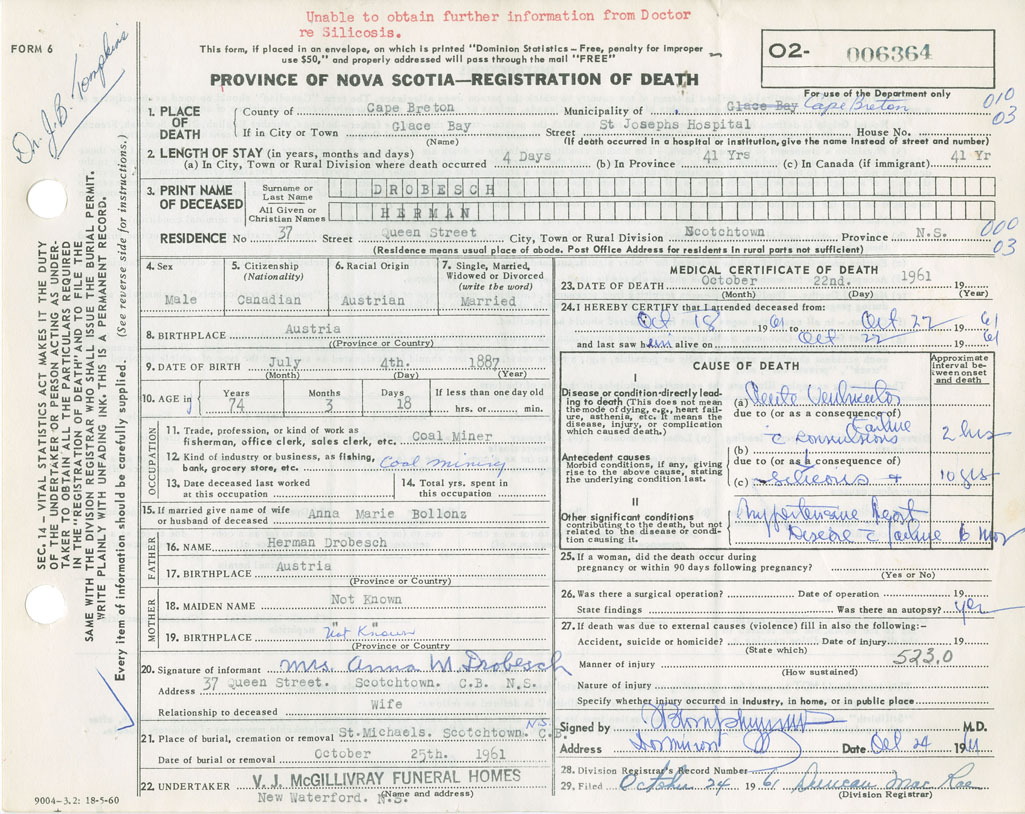 Unable to obtain further information from Doctor
re Silicosis.
FORM 6
Dr. J.B. Tompkins
This form, if placed in an envelope, on which is printed "Dominion Statistics – Free, penalty for improper
use $50," and properly addressed will pass through the mail "FREE"
O2- 006364
PROVINCE OF NOVA SCOTIA—REGISTRATION OF DEATH
For use of the Department only
010
03
1. PLACE OF DEATH
County of Cape Breton Municipality of Glace Bay Cape Breton
If in City or Town Glace Bay Street St Josephs Hospital House No.
(Name) (If death occurred in a hospital or institution, give the name instead of street and number)
2. LENGTH OF STAY (in years, months and days)
(a) In City, Town or Rural Division where death occurred 4 Days (b) In Province 41 Yrs (c) In Canada (if immigrant) 41 Yr
3. PRINT NAME OF DECEASED
Surname or Last Name DROBESCH
All Given or Christian Names HERMAN
RESIDENCE No 37 Street Queen Street City, Town or Rural Division Scotchtown Province N.S.
000
03
(Residence means usual place of abode. Post Office Address for residents in rural parts not sufficient)
4. Sex
Male
5. Citizenship
(Nationality)
Canadian
6. Racial Origin
Austrian
7. Single, Married, Widowed or Divorced
(write the word)
Married
8. BIRTHPLACE Austria
(Province or Country)
9. DATE OF BIRTH July 4th. 1887
(Month) (Day) (Year)
10. AGE in
Years 74
Months 3
Days 18
If less than one day old
hrs. or min.
OCCUPATION
11. Trade, profession, or kind of work as
fisherman, office clerk, sales clerk, etc. Coal Miner
12. Kind of industry or business, as fishing,
bank, grocery store, etc. Coal mining
13. Date deceased last worked
at this occupation
14. Total yrs. spent in
this occupation
15. If married give name of wife
or husband of deceased Anna Marie Bollonz
FATHER
16. NAME Herman Drobesch
17. BIRTHPLACE Austria
(Province or Country)
MOTHER
18. MAIDEN NAME Not Known
19. BIRTHPLACE "Not Known"
(Province or Country)
20. Signature of informant Mrs. Anna M. Drobesch
Address 37 Queen Street. Scotchtown. C.B. N.S.
Relationship to deceased Wife
21. Place of burial, cremation or removal St.Michaels. Scotchtown. C.B. N.S.
Date of burial or removal October 25th. 1961
22. UNDERTAKER V. J. McGILLIVRAY FUNERAL HOMES
New Waterford. N.S. (Name and address)
9004-3.2: 18-5-60
MEDICAL CERTIFICATE OF DEATH
23. DATE OF DEATH October 22nd. 1961 19
(Month) (Day) (Year)
24. I HEREBY CERTIFY that I attended deceased from:
Oct 18 1961 to Oct 22 1961
and last saw him alive on Oct 22 1961
CAUSE OF DEATH
Approximate interval between onset and death
I
Disease or condition directly leading to death (This does not mean the mode of dying, e.g., heart failure, asthenia, etc. It means the disease, injury, or complication which caused death.)
(a) Acute Ventricular
due to (or as a consequence of)
Failure
c convulsions 2 hrs
Antecedent causes
Morbid conditions, if any, giving rise to the above cause, stating the underlying condition last.
(b)
due to (or as a consequence of)
(c) Silicosis + 10 yrs
II
Other significant conditions
contributing to the death, but not related to the disease or condition causing it.
Hypertensive Heart
Disease c failure 6 mos
25. If a woman, did the death occur during
pregnancy or within 90 days following pregnancy?
(Yes or No)
26. Was there a surgical operation? Date of operation 19
State findings Was there an autopsy? yes
27. If death was due to external causes (violence) fill in also the following:–
Accident, suicide or homicide? Date of injury 19
(State which)
Manner of injury 523.0
(How sustained)
Nature of injury
Specify whether injury occurred in industry, in home, or in public place
Signed by M.D.
Address Dominion Date Oct 24 1961
28. Division Registrar's Record Number
29. Filed October 24 1961 Duncan MacRae
(Division Registrar)
SEC. 14 – VITAL STATISTICS ACT MAKES IT THE DUTY
OF THE UNDERTAKER OR PERSON ACTING AS UNDER-
TAKER TO OBTAIN ALL THE PARTICULARS REQUIRED
IN THE "REGISTRATION OF DEATH" AND TO FILE THE
SAME WITH THE DIVISION REGISTRAR WHO SHALL ISSUE THE BURIAL PERMIT.
WRITE PLAINLY WITH UNFADING INK. THIS IS A PERMANENT RECORD.
Every item of information should be carefully supplied. (See reverse side for instructions.)